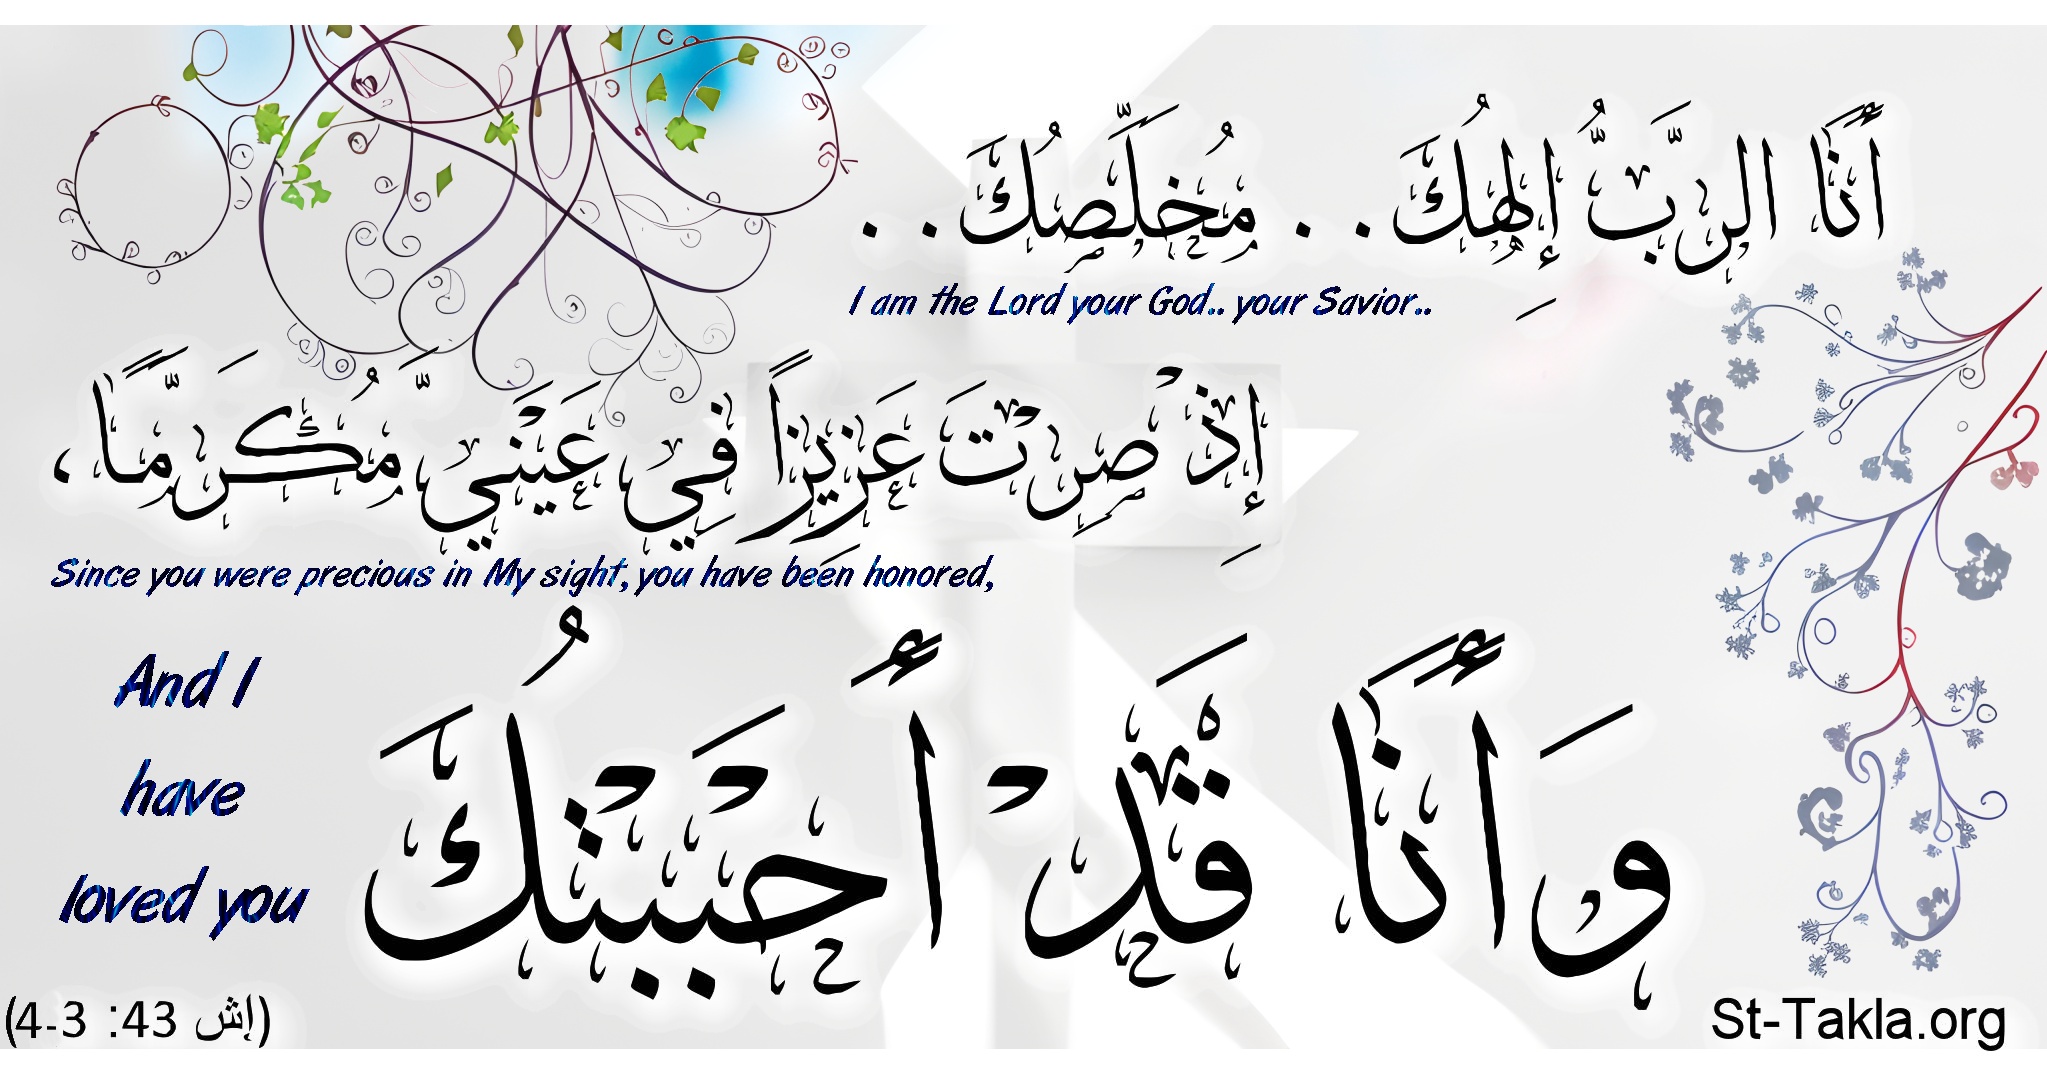 أَنَا الرَّبُّ إِلهُكَ. . مُخَلِّصُكَ. .
I am the Lord your God.. your Savior..
إِذْ صِرْتَ عَزِيزًا فِي عَيْنَيَّ مُكَرَّمًا،
Since you were precious in My sight, you have been honored,
وَأَنَا قَدْ أَحْبَبْتُكَ
And I
have
loved you
(إش 43: 3-4)
St-Takla.org